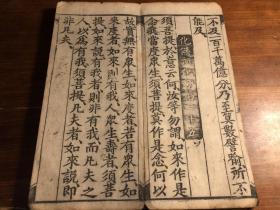 不及一百千萬億分乃至筭數譬喻所不
能及
化無所化分第二十五
須菩提於意云何汝等勿謂如來作是
念我當度衆生須菩提莫作是念何以
故實無有衆生如來度者若有衆生如
來度者如來即有我人衆生壽者須菩
提如來說有我者則非有我而凡夫之
人以為有我須菩提凡夫者如來說即
非凡夫